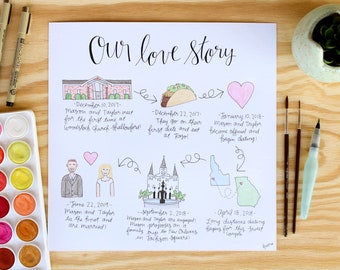 Our love story
- December 10, 2017 -
Mason and Taylor meet
for the first time at
church
- December 22, 2017 -
They go on their
first date and eat
at
- January 10, 2018 -
Mason and Taylor
become official and
begin dating!
- June 22, 2019 -
Mason and Taylor
tie the knot and
are married!
- September 2, 2018 -
Mason and Taylor are engaged!
Mason proposes on a
family trip to New Orleans
in Jackson Square!
- April 18, 2018 -
Long distance dating
begins for the